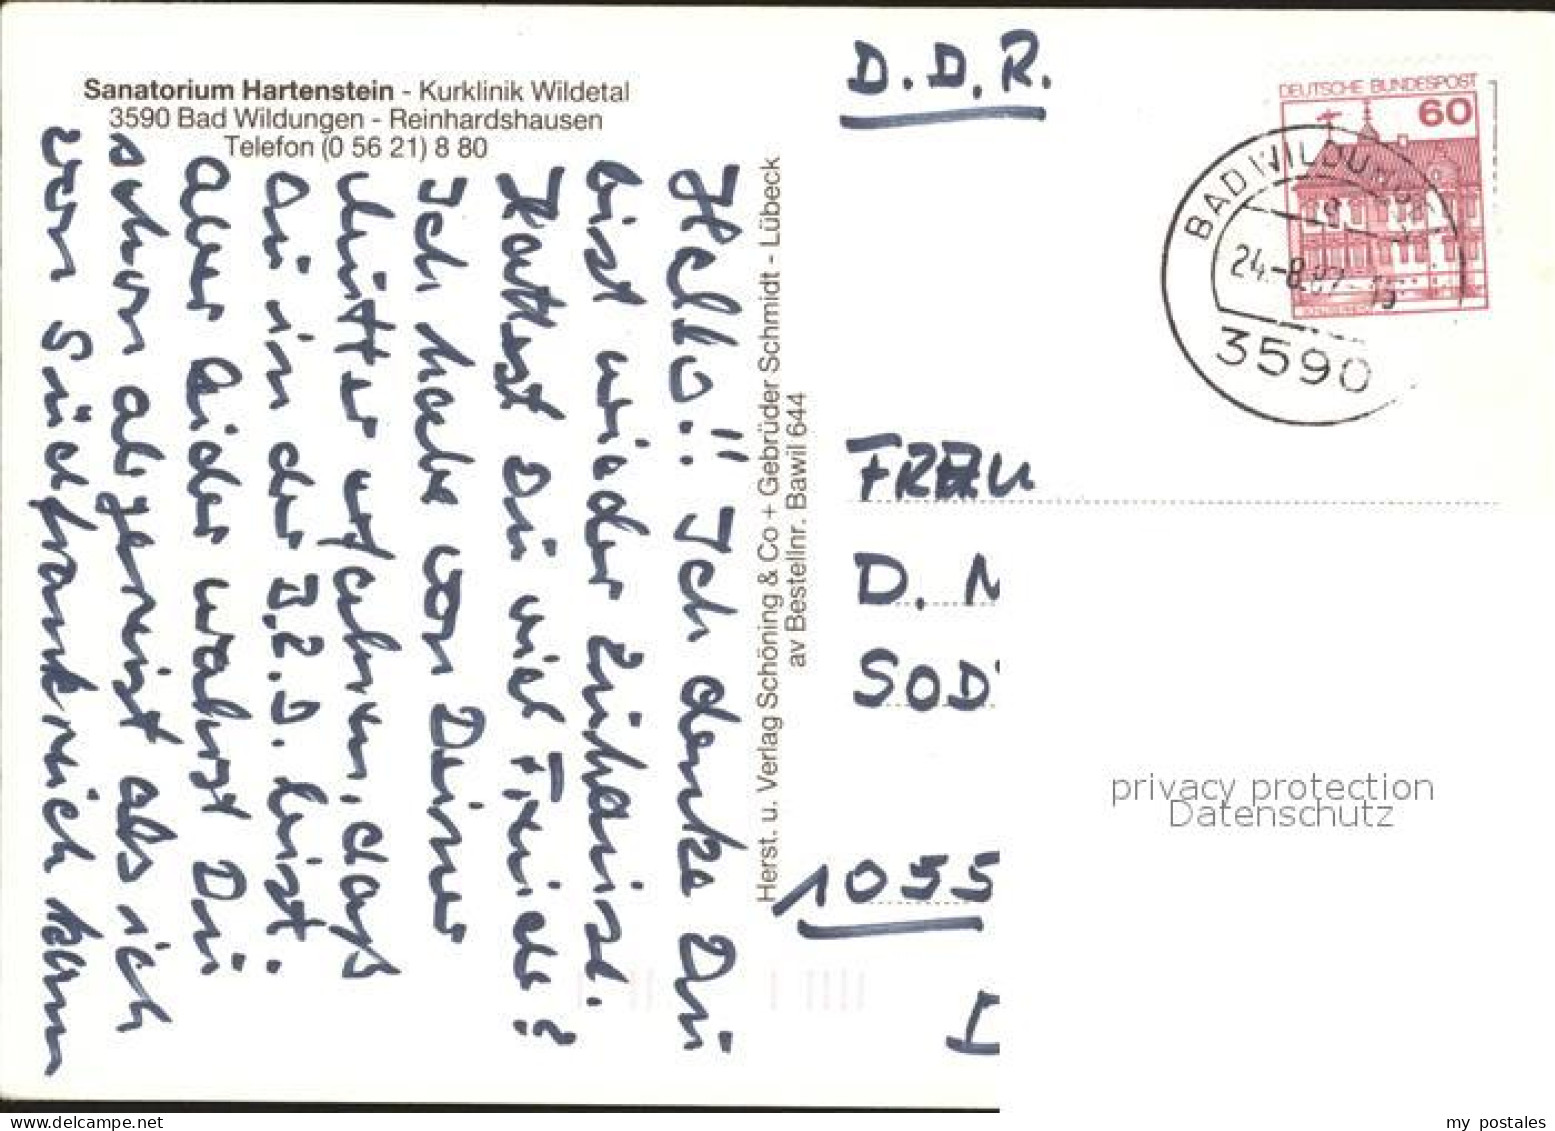 Sanatorium Hartenstein - Kurklinik Wildetal
3590 Bad Wildungen - Reinhardshausen
Telefon (0 56 21) 8 80
Hello!! Ich denke Du
bist wieder zuhause.
Hattest Du viel Freude?
Ich habe von Deiner
Mutter erfahren, daß
Du in der bist.
aber leider warst Du
schon abgereist als ich
von Südfrankreich kam
Herst. u. Verlag Schöning & Co + Gebrüder Schmidt - Lübeck
av Bestellnr. Bawil 644
D.D.R.
DEUTSCHE BUNDESPOST
60
BAD WILDUNGEN
24.-8.87-15
3590
FRAU
D. M
SOD
1055
privacy protection
Datenschutz
my postales